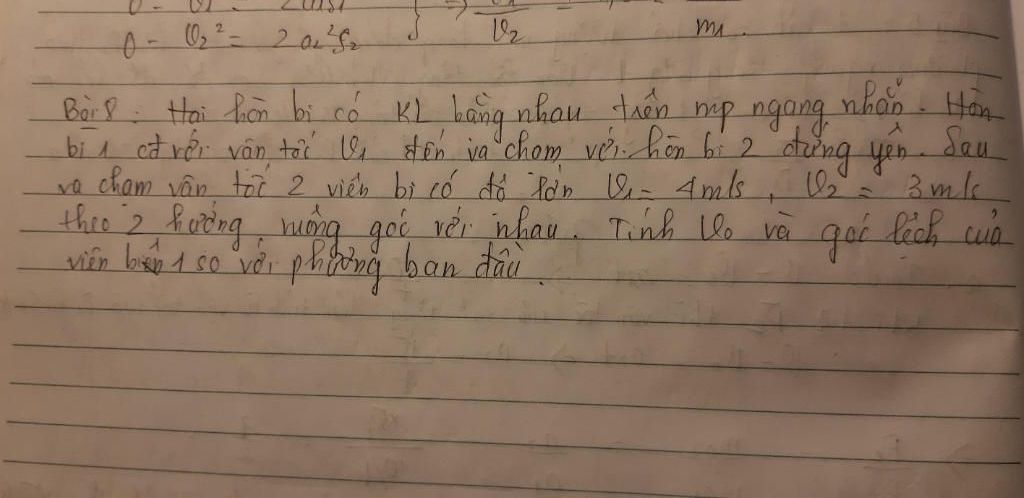 0 - v₂² = 2a₂²S₂ } v₂ m₁.
Bài 8: Hai hòn bi có KL bằng nhau trên mp ngang nhẵn. Hòn
bi 1 cđ với vân tốc v₁ đến va chạm với hòn bi 2 đứng yên. Sau
va chạm vân tốc 2 viên bi có độ lớn v₁ = 4m/s, v₂ = 3m/s
theo 2 hướng vuông góc với nhau. Tính v₀ và góc lệch của
viên bi 1 so với phương ban đầu.